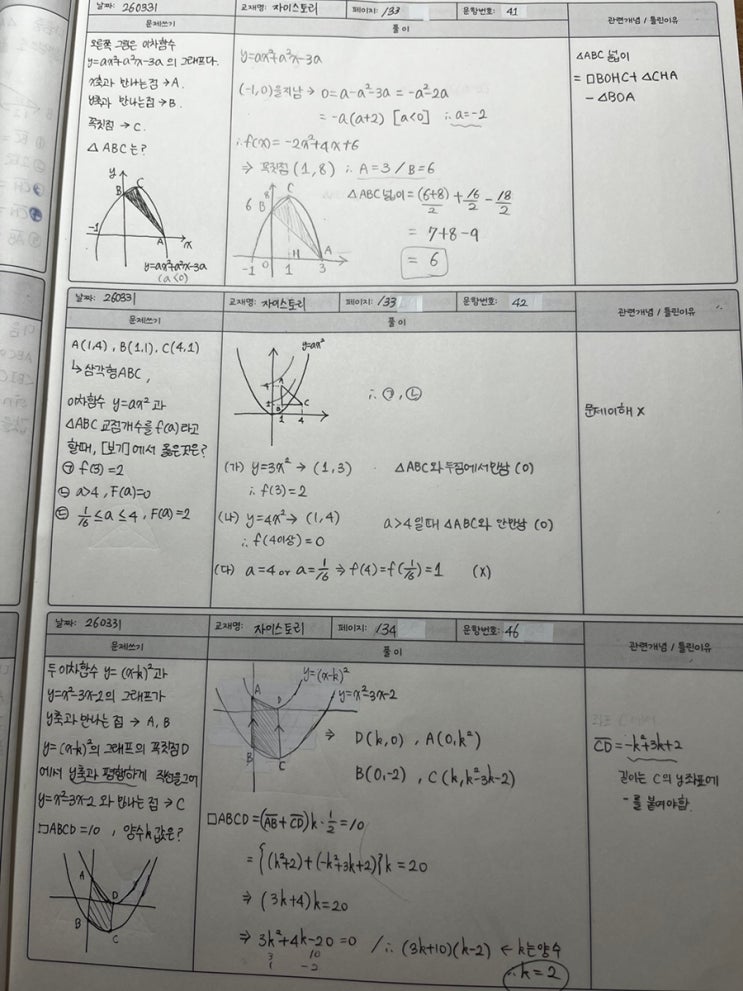 날짜: 260331 교재명: 자이스토리 페이지: 133 문항번호: 41
문제쓰기 풀 이 관련개념 / 틀린이유
오른쪽 그림은 이차함수
y=ax²+a²x-3a 의 그래프다.
x축과 만나는점 → A.
y축과 만나는점 → B.
꼭짓점 → C.
△ABC는?
y
B C
-1 A x
y=ax²+a²x-3a
(a<0)
y=ax²+a²x-3a
(-1,0)을지남 → 0=a-a²-3a = -a²-2a
= -a(a+2) [a<0] ∴ a=-2
∴f(x) = -2x²+4x+6
⇒ 꼭짓점 (1,8) ∴ A=3 / B=6
△ABC넓이 = (6+8)/2 + 16/2 - 18/2
= 7+8-9
= 6
8 C
6 B
H A
-1 0 1 3
△ABC 넓이
= □BOHC+△CHA
- △BOA
날짜: 260331 교재명: 자이스토리 페이지: 133 문항번호: 42
문제쓰기 풀 이 관련개념 / 틀린이유
A(1,4), B(1,1), C(4,1)
↳삼각형ABC,
이차함수 y=ax²과
△ABC 교점개수를 f(a)라고
할때, [보기]에서 옳은것은?
㉠ f(3)=2
㉡ a>4, F(a)=0
㉢ 1/16≤a≤4, F(a)=2
y=ax²
4 A
1 B C
1 4
∴ ㉠, ㉡
(가) y=3x² → (1,3) △ABC와 두점에서만남 (O)
∴ f(3)=2
(나) y=4x² → (1,4) a>4일때 △ABC와 안만남 (O)
∴ f(4이상)=0
(다) a=4 or a=1/16 ⇒ f(4)=f(1/16)=1 (X)
문제이해 X
날짜: 260331 교재명: 자이스토리 페이지: 134 문항번호: 46
문제쓰기 풀 이 관련개념 / 틀린이유
두 이차함수 y=(x-k)²과
y=x²-3x-2의 그래프가
y축과 만나는 점 → A, B
y=(x-k)²의 그래프의 꼭짓점D
에서 y축과 평행하게 직선을그어
y=x²-3x-2 와 만나는 점 → C
□ABCD=10, 양수k값은?
A
D
B
C
y=(x-k)²
y=x²-3x-2
A
D
B
C
⇒ D(k,0), A(0,k²)
B(0,-2), C(k,k²-3k-2)
□ABCD=(AB+CD)k·1/2=10
= {(k²+2)+(-k²+3k+2)}k = 20
⇒ (3k+4)k=20
⇒ 3k²+4k-20=0 /∴ (3k+10)(k-2) ← k는양수
3 10
1 -2
∴k=2
CD=-k²+3k+2
길이는 C의 y좌표에
-를 붙여야함.